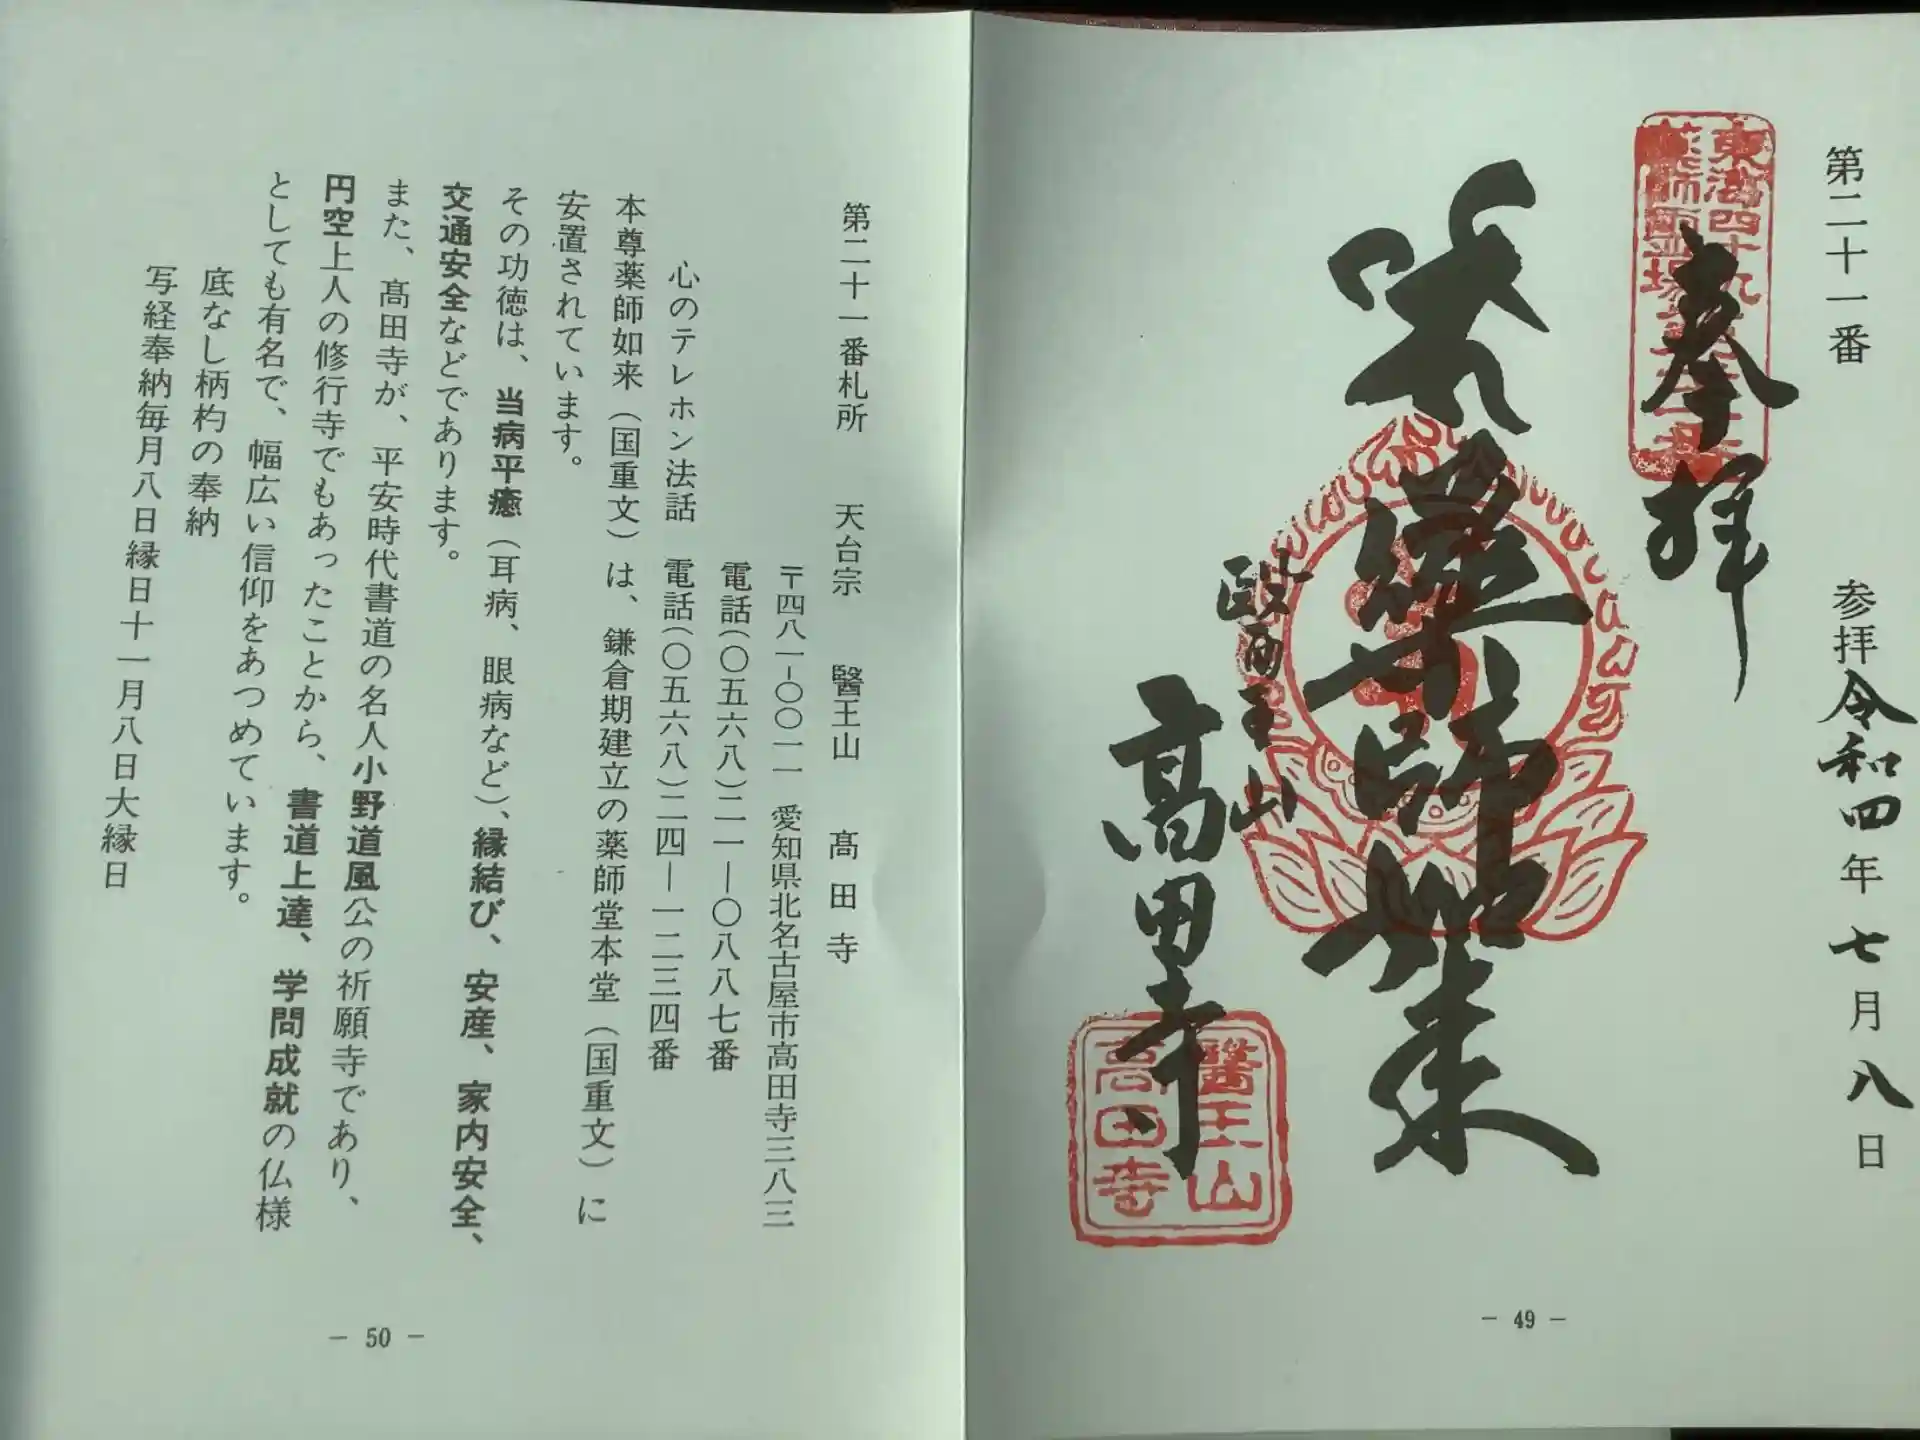 第二十一番
参拝令和四年七月八日
東海四十九
薬師霊場第二十一番
奉拝
薬師如来
醫王山
高田寺
醫王山
高田寺
- 49 -
第二十一番札所 天台宗 醫王山 髙田寺
〒四八一-〇〇一一 愛知県北名古屋市高田寺三八三
電話(〇五六八)二一―〇八八七番
心のテレホン法話 電話(〇五六八)二四―一二三四番
本尊薬師如来(国重文)は、鎌倉期建立の薬師堂本堂(国重文)に
安置されています。
その功徳は、当病平癒(耳病、眼病など)、縁結び、安産、家内安全、
交通安全などであります。
また、髙田寺が、平安時代書道の名人小野道風公の祈願寺であり、
円空上人の修行寺でもあったことから、書道上達、学問成就の仏様
としても有名で、幅広い信仰をあつめています。
底なし柄杓の奉納
写経奉納毎月八日縁日十一月八日大縁日
- 50 -